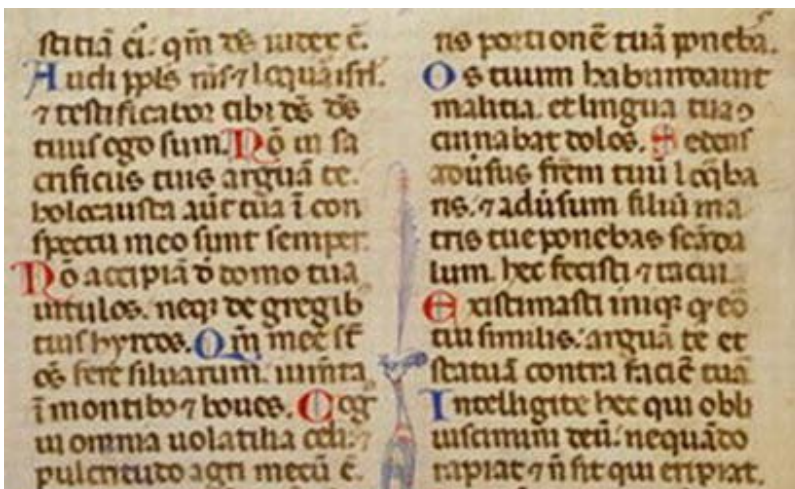 stitiā ei: qm̄ ds̄ iudex ē.
Audi ppl̄s m̄s ⁊ loquar isrl̄.
⁊ testificabor tibi ds̄ ds̄
tuus ego sum. Nō in sa
crificiis tuis arguā te.
holocausta aūt tua ī con
spectu meo sunt semper.
Nō accipiā d̄ domo tua
uitulos. neqꝫ de gregibꝰ
tuis hyrcos. Qm̄ mee st̄
oēs fere siluarum. ium̄ta
ī montibꝰ ⁊ boues. Cog
ui omnia uolatilia celi: ⁊
pulcritudo agri mecū ē.
ris portionē tuā poneba.
Os tuum habundauit
malitia. et lingua tua ↄ
cinnabat dolos. Sedens
aduersus frēm tuū loq̄ba
ris. ⁊ adūsum filiū ma
tris tue ponebas scāda
lum. hec fecisti ⁊ tacui
Existimasti iniqꝫ qꝫ eo
tui similis: arguā te et
statuā contra faciē tuā
Intelligite hec qui obli
uiscimini deū: nequādo
rapiat ⁊ n̄ sit qui eripiat.